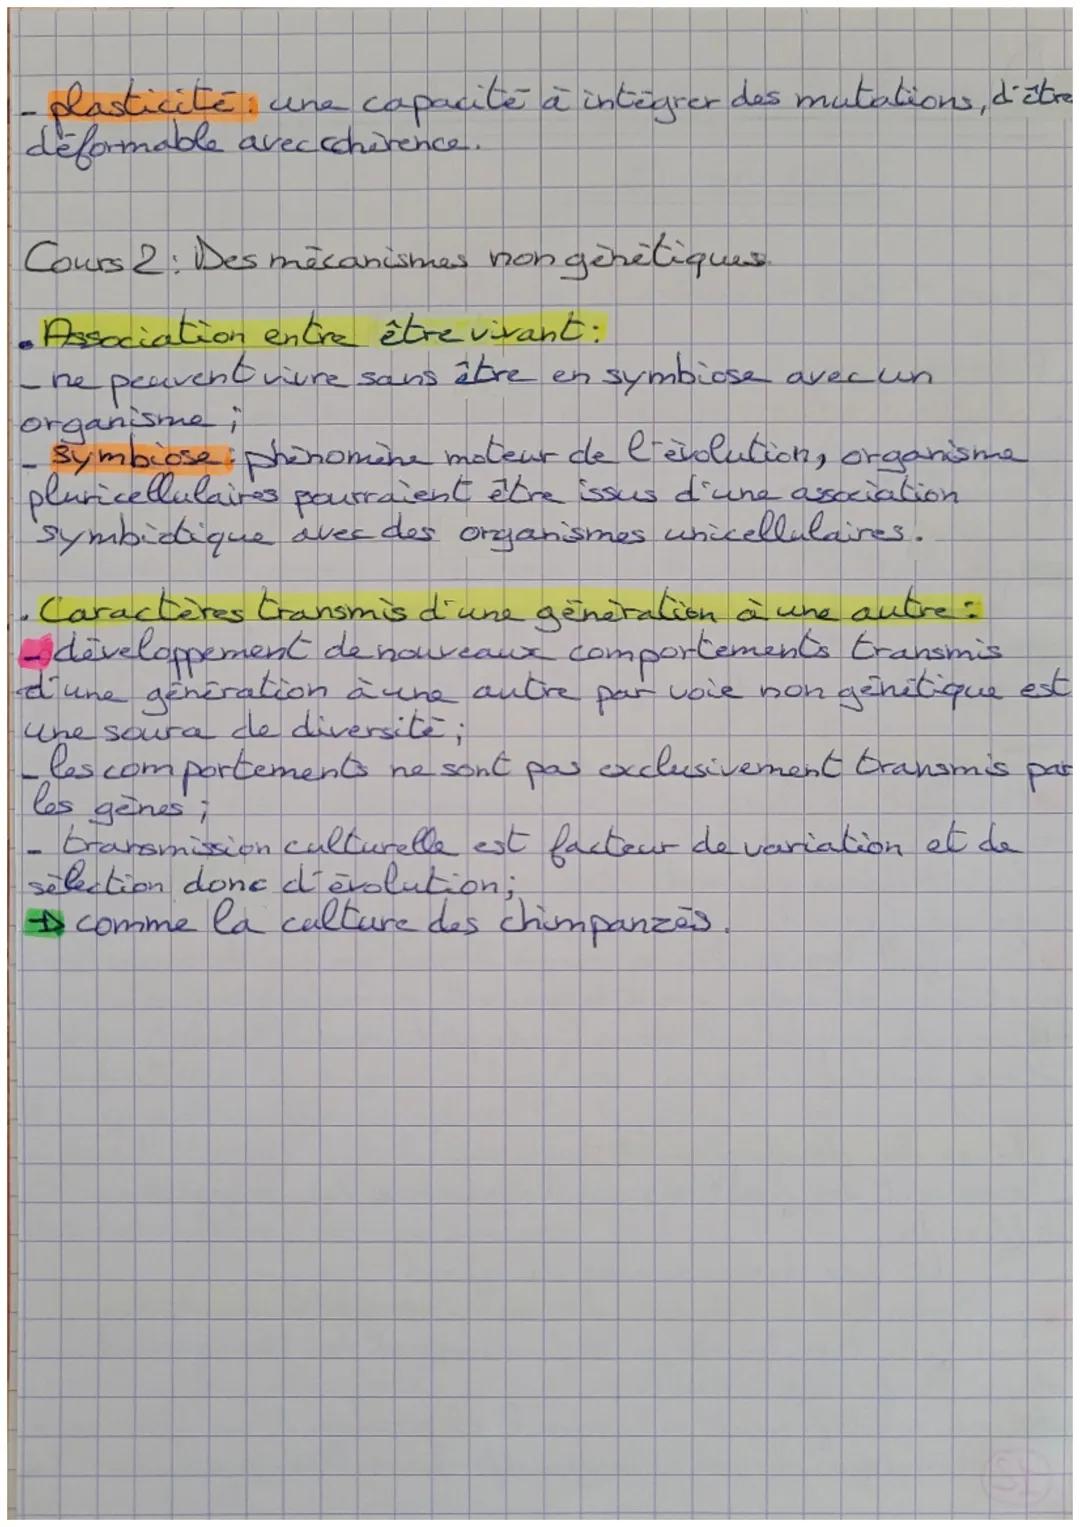 - plasticité : une capacité à intégrer des mutations, d'être
déformable avec cohérence.
Cours 2 : Des mécanismes non génétiques
• Association entre être vivant :
- ne peuvent vivre sans être en symbiose avec un
organisme ;
- symbiose : phénomène moteur de l'évolution, organisme
pluricellulaires pourraient être issus d'une association
symbiotique avec des organismes unicellulaires.
• Caractères transmis d'une génération à une autre :
- développement de nouveaux comportements transmis
d'une génération à une autre par voie non génétique est
une source de diversité ;
- les comportements ne sont pas exclusivement transmis par
les gènes ;
- transmission culturelle est facteur de variation et de
sélection donc d'évolution ;
→ comme la culture des chimpanzés.